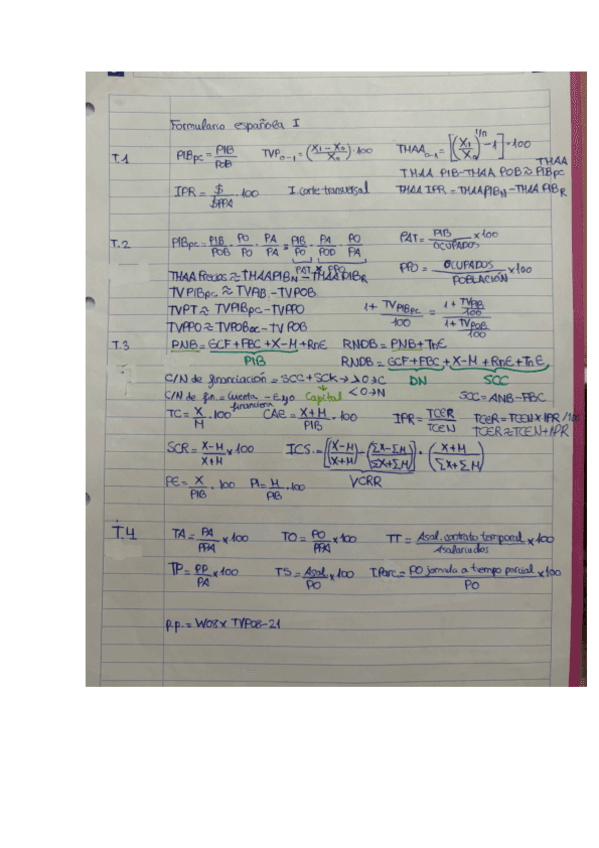 Formulario española I
T.1 PIBpc = PIB/POB TVP0-1 = (X1 - X0/X0)·100 THAA0-1 = [(X1/X0)^1/n - 1]·100
THAA
THAA PIB - THAA POB ≈ PIBpc
IPR = $/$PPA · 100 I. corte transversal THAA IPR = THAAPIBN - THAA PIBR
T.2 PIBpc = PIB/POB · PO/PO · PA/PA = PIB/PO · PA/POD · PO/PA PAT = PIB/OCUPADOS x100
PAT x PPO
PPO = OCUPADOS/POBLACIÓN x100
THAA Precios ≈ THAAPIBN - THAAPIBR
TVPIBpc ≈ TVPIB - TVPOB
TVPT ≈ TVPIBpc - TVPPO 1 + TVPIBpc/100 = 1 + TVPIB/100 / 1 + TVPOB/100
TVPPO ≈ TVPOBoc - TVPOB
T.3 PNB = GCF + FBC + X - M + RnE RNDB = PNB + TnE
PIB
RNDB = GCF + FBC + X - M + RnE + TnE
DN SCC
C/N de financiación = SCC + SCK → >0 → C
<0 → N
C/N de fin. = Cuenta financiera - E yo Capital SCC = ANB - FBC
TC = X/M · 100 CAE = X+M/PIB · 100 IPR = TCER/TCEN TCER = TCEN x IPR/100
TCER ≈ TCEN + IPR
SCR = X-M/X+M x100 ICS = [(X-M/X+M) - (ΣX-ΣM/ΣX+ΣM)] · (X+M/ΣX+ΣM)
VCRR
PE = X/PIB · 100 PI = M/PIB · 100
T.4 TA = PA/PPA x100 TO = PO/PPA x100 TT = Asal. contrato temporal/Asalariados x100
TP = PP/PA x100 TS = Asal/PO x100 T.Parc = PO jornada a tiempo parcial/PO x100
p.p. = W08 x TVP08-21